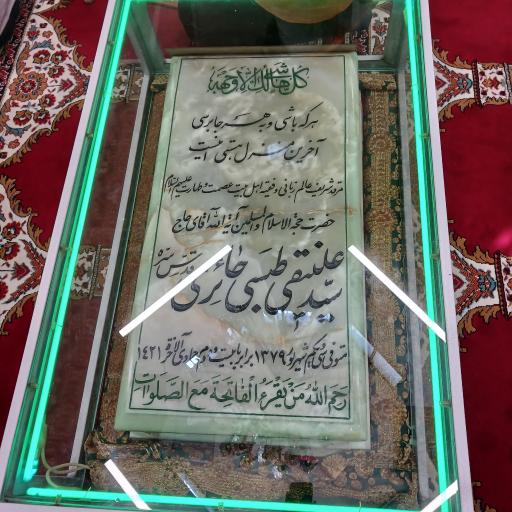 كل شئ هالك الا وجهه
هر که باشی و به هر جا برسی
آخرین منزل هستی اینست
مرقد شریف عالم ربانی و فقیه اهل بیت عصمت و طهارت علیهم السلام
حضرت حجة الاسلام والمسلمین آیة الله آقای حاج
سید علینقی طبسی حائری قدس سره
متوفی سی یکم شهریور ۱۳۷۹ برابر با بیست و دوم جمادی الآخره ۱۴۲۱
رحم الله من يقرء الفاتحة مع الصلوات